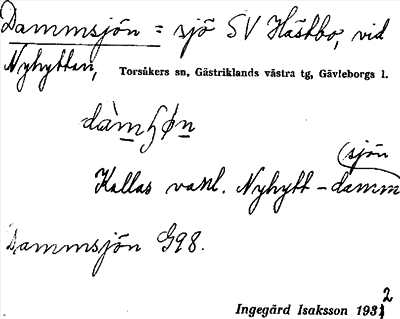 Dammsjön = sjö SV Hästbo, vid
Nyhyttan, Torsåkers sn, Gästriklands västra tg, Gävleborgs l.
dàmʃøn
(sjön
Kallas vanl. Nyhytt-damm
Dammsjön G98.
Ingegärd Isaksson 1932